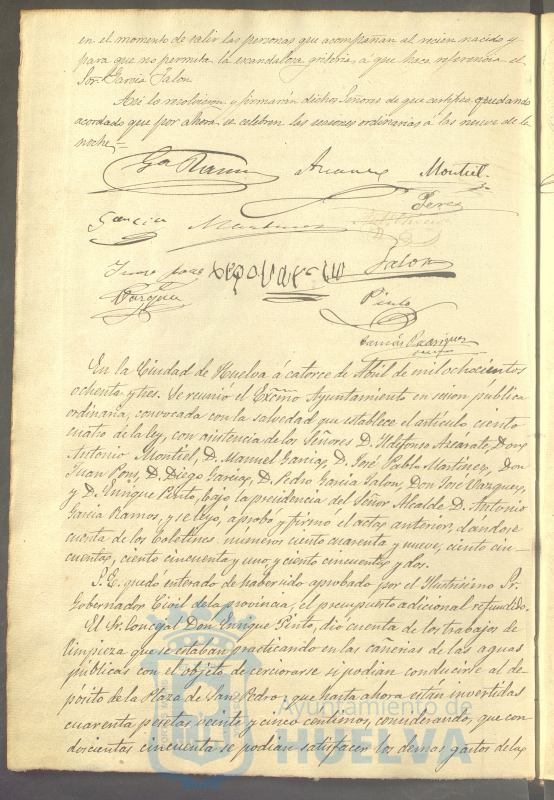 en el momento de salir las personas que acompañan al recien nacido y
para que no permita la escandalosa griteria, á que hace referencia el
Sor. Garcia Jalon
Asi lo resolvieron y firmarán dichos Señores de que certifico, quedando
acordado que por ahora se celebren las sesiones ordinarias á las nueve de la
noche=
Ga Ramos Montiel
Perez
Garcia Martinez
Jalon
Vazquez Pinto
Rodriguez
En la Ciudad de Huelva á catorce de Abril de mil ochocientos
ochenta y tres. Se reunió el Excmo Ayuntamiento en sesion publica
ordinaria, convocada con la salvedad que establece el articulo ciento
cuatro de la ley, con asistencia de los Señores D. Ildefonso Ascarate, Don
Antonio Montiel, D. Manuel Garcia, D. José Pablo Martinez, Don
Juan Pons, D. Diego Garcia, D. Pedro Garcia Jalon, Don José Vazquez,
y D. Enrique Pinto, bajo la presidencia del Señor Alcalde D. Antonio
Garcia Ramos, y se leyó, aprobó y firmó el acta anterior, dandose
cuenta de los boletines numeros ciento cuarenta y nueve, ciento cin-
cuenta, ciento cincuenta y uno, y ciento cincuenta y dos.
S. E. quedó enterado de haber sido aprobado por el Ilustrisimo Sr.
Gobernador Civil de la provincia, el presupuesto adicional refundido.
El Sr. Concejal Don Enrique Pinto, dió cuenta de los trabajos de
limpieza que se estaban practicando en las cañerias de las aguas
publicas con el objeto de cerciorarse si podian conducirse al de-
pósito de la Plaza de San Pedro; que hasta ahora estan invertidas
cuarenta pesetas veinte y cinco centimos, considerando, que con
doscientas cincuenta se podian satisfacer los demas gastos de las
Ayuntamiento de
HUELVA